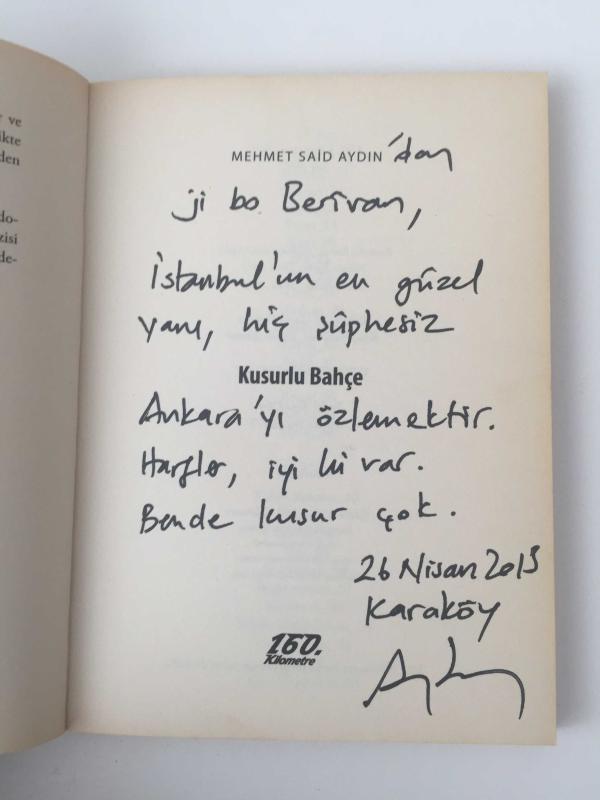 r ve
ikte
den
do-
zisi
de-
MEHMET SAİD AYDIN'dan
ji bo Berîvan,
İstanbul'un en güzel
yanı, hiç şüphesiz
Kusurlu Bahçe
Ankara'yı özlemektir.
Harfler, iyi ki var.
Bende kusur çok.
26 Nisan 2013
Karaköy
160.
Kilometre